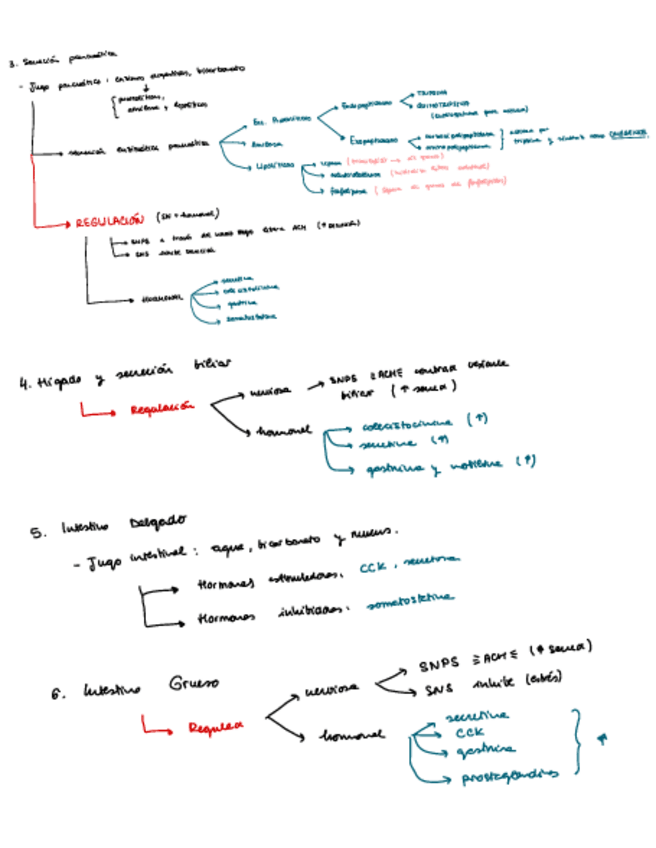 3. Secreción pancreática
- Jugo pancreático: enzimas digestivas, bicarbonato
proteolíticas,
amilasa y lipolíticas
secreción enzimática pancreática
Enz. Proteolíticas
Endopeptidasas
TRIPSINA
QUIMOTRIPSINA
Exopeptidasas
carboxipolipeptidasa
aminopolipeptidasa
Amilasa
Lipolíticas
Lipasa
fosfolipasa
REGULACIÓN (SN + hormonal)
SNPS a través del nervio vago libera ACH (↑ secreción)
SNS inhibe secreción
HORMONAL
secretina
colecistocinina
gastrina
somatostatina
4. Hígado y secreción biliar
Regulación
nerviosa
SNPS ΞACHΞ contrae vesícula
biliar (↑ secrec)
hormonal
colecistocinina (↑)
secretina (↑)
gastrina y motilina (↑)
5. Intestino Delgado
- Jugo intestinal: agua, bicarbonato y mucus.
Hormonas estimuladoras: CCK, secretina
Hormonas inhibidoras: somatostatina
6. Intestino Grueso
Regulac
nerviosa
SNPS ΞACHΞ (↑ secrec)
SNS inhibe (estrés)
hormonal
secretina
CCK
gastrina
prostaglandinas
↑